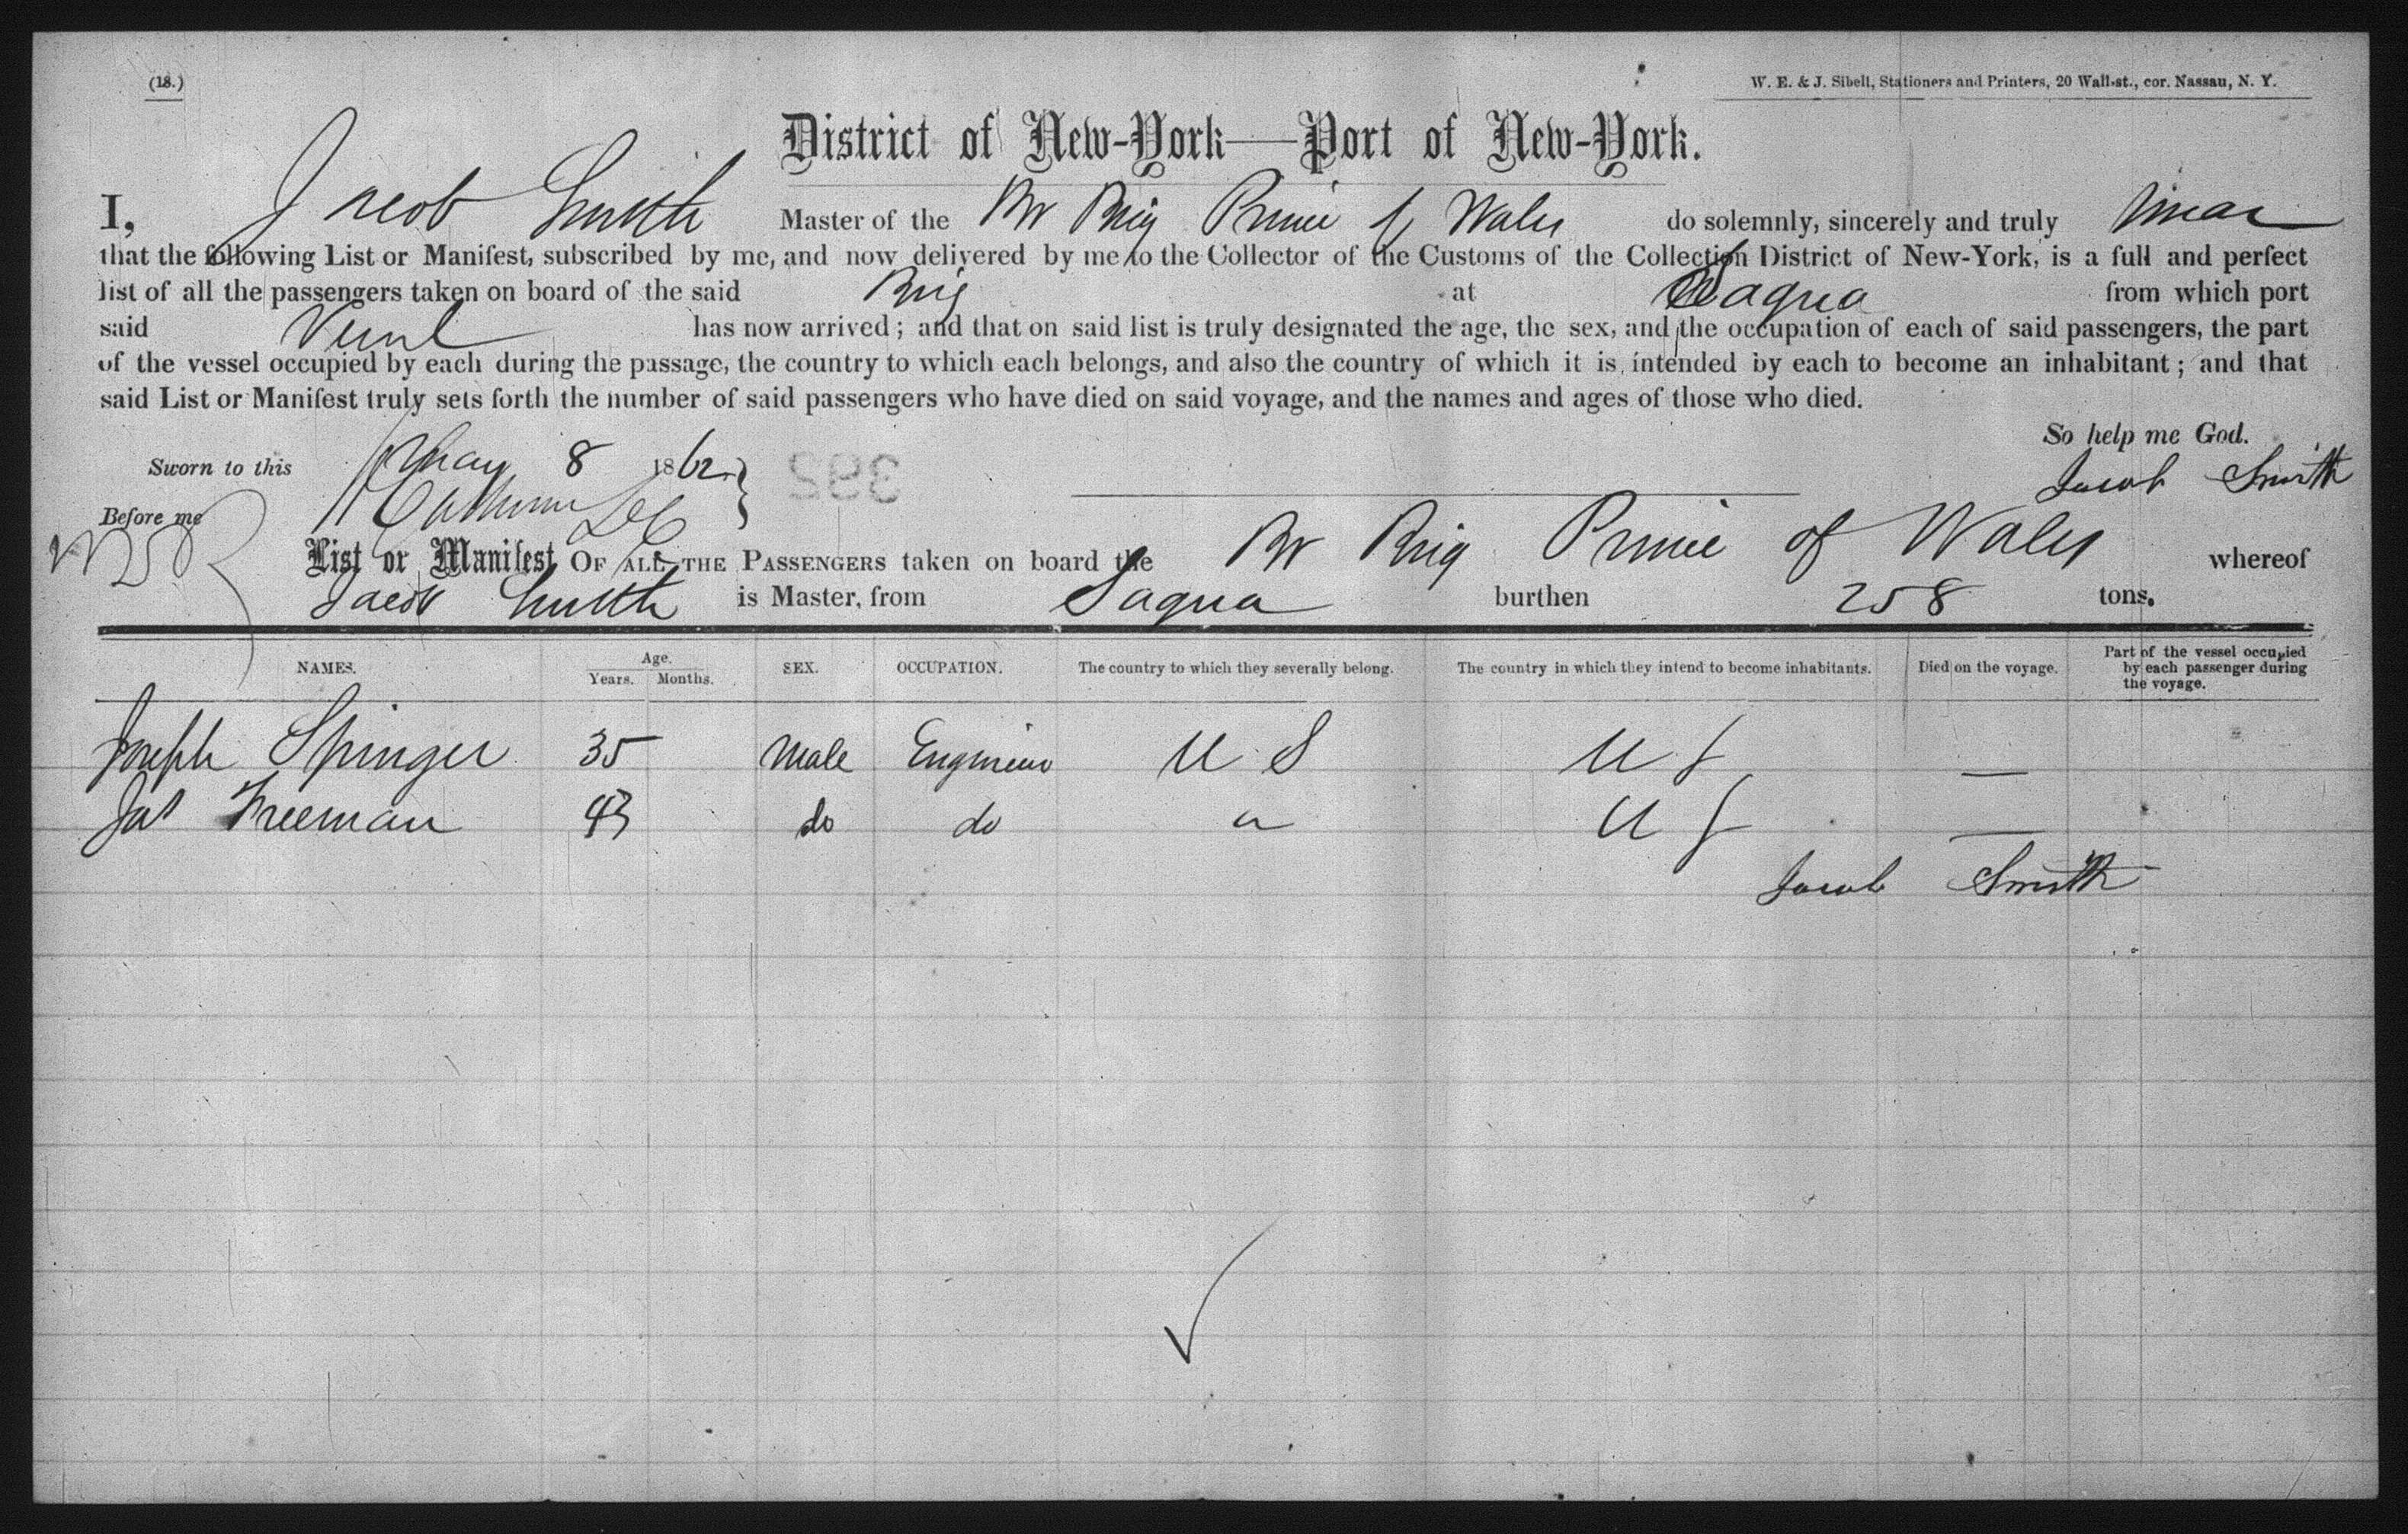 (18.)
W. E. & J. Sibell, Stationers and Printers, 20 Wall-st., cor. Nassau, N. Y.
District of New-York—Port of New-York.
I, Jacob Smith Master of the Br Brig Prince of Wales do solemnly, sincerely and truly swear
that the following List or Manifest, subscribed by me, and now delivered by me to the Collector of the Customs of the Collection District of New-York, is a full and perfect
list of all the passengers taken on board of the said Brig at Sagua from which port
said Vessel has now arrived; and that on said list is truly designated the age, the sex, and the occupation of each of said passengers, the part
of the vessel occupied by each during the passage, the country to which each belongs, and also the country of which it is intended by each to become an inhabitant; and that
said List or Manifest truly sets forth the number of said passengers who have died on said voyage, and the names and ages of those who died.
So help me God.
Sworn to this May 8 1862 }
392
Jacob Smith
Before me
List or Manifest OF ALL THE PASSENGERS taken on board the Br Brig Prince of Wales whereof
Jacob Smith is Master, from Sagua burthen 258 tons.
NAMES. Age. Years. Months. SEX. OCCUPATION. The country to which they severally belong. The country in which they intend to become inhabitants. Died on the voyage. Part of the vessel occupied by each passenger during the voyage.
Joseph Springer 35 Male Engineer U S U S —
Jas Freeman 43 do do " U S —
Jacob Smith